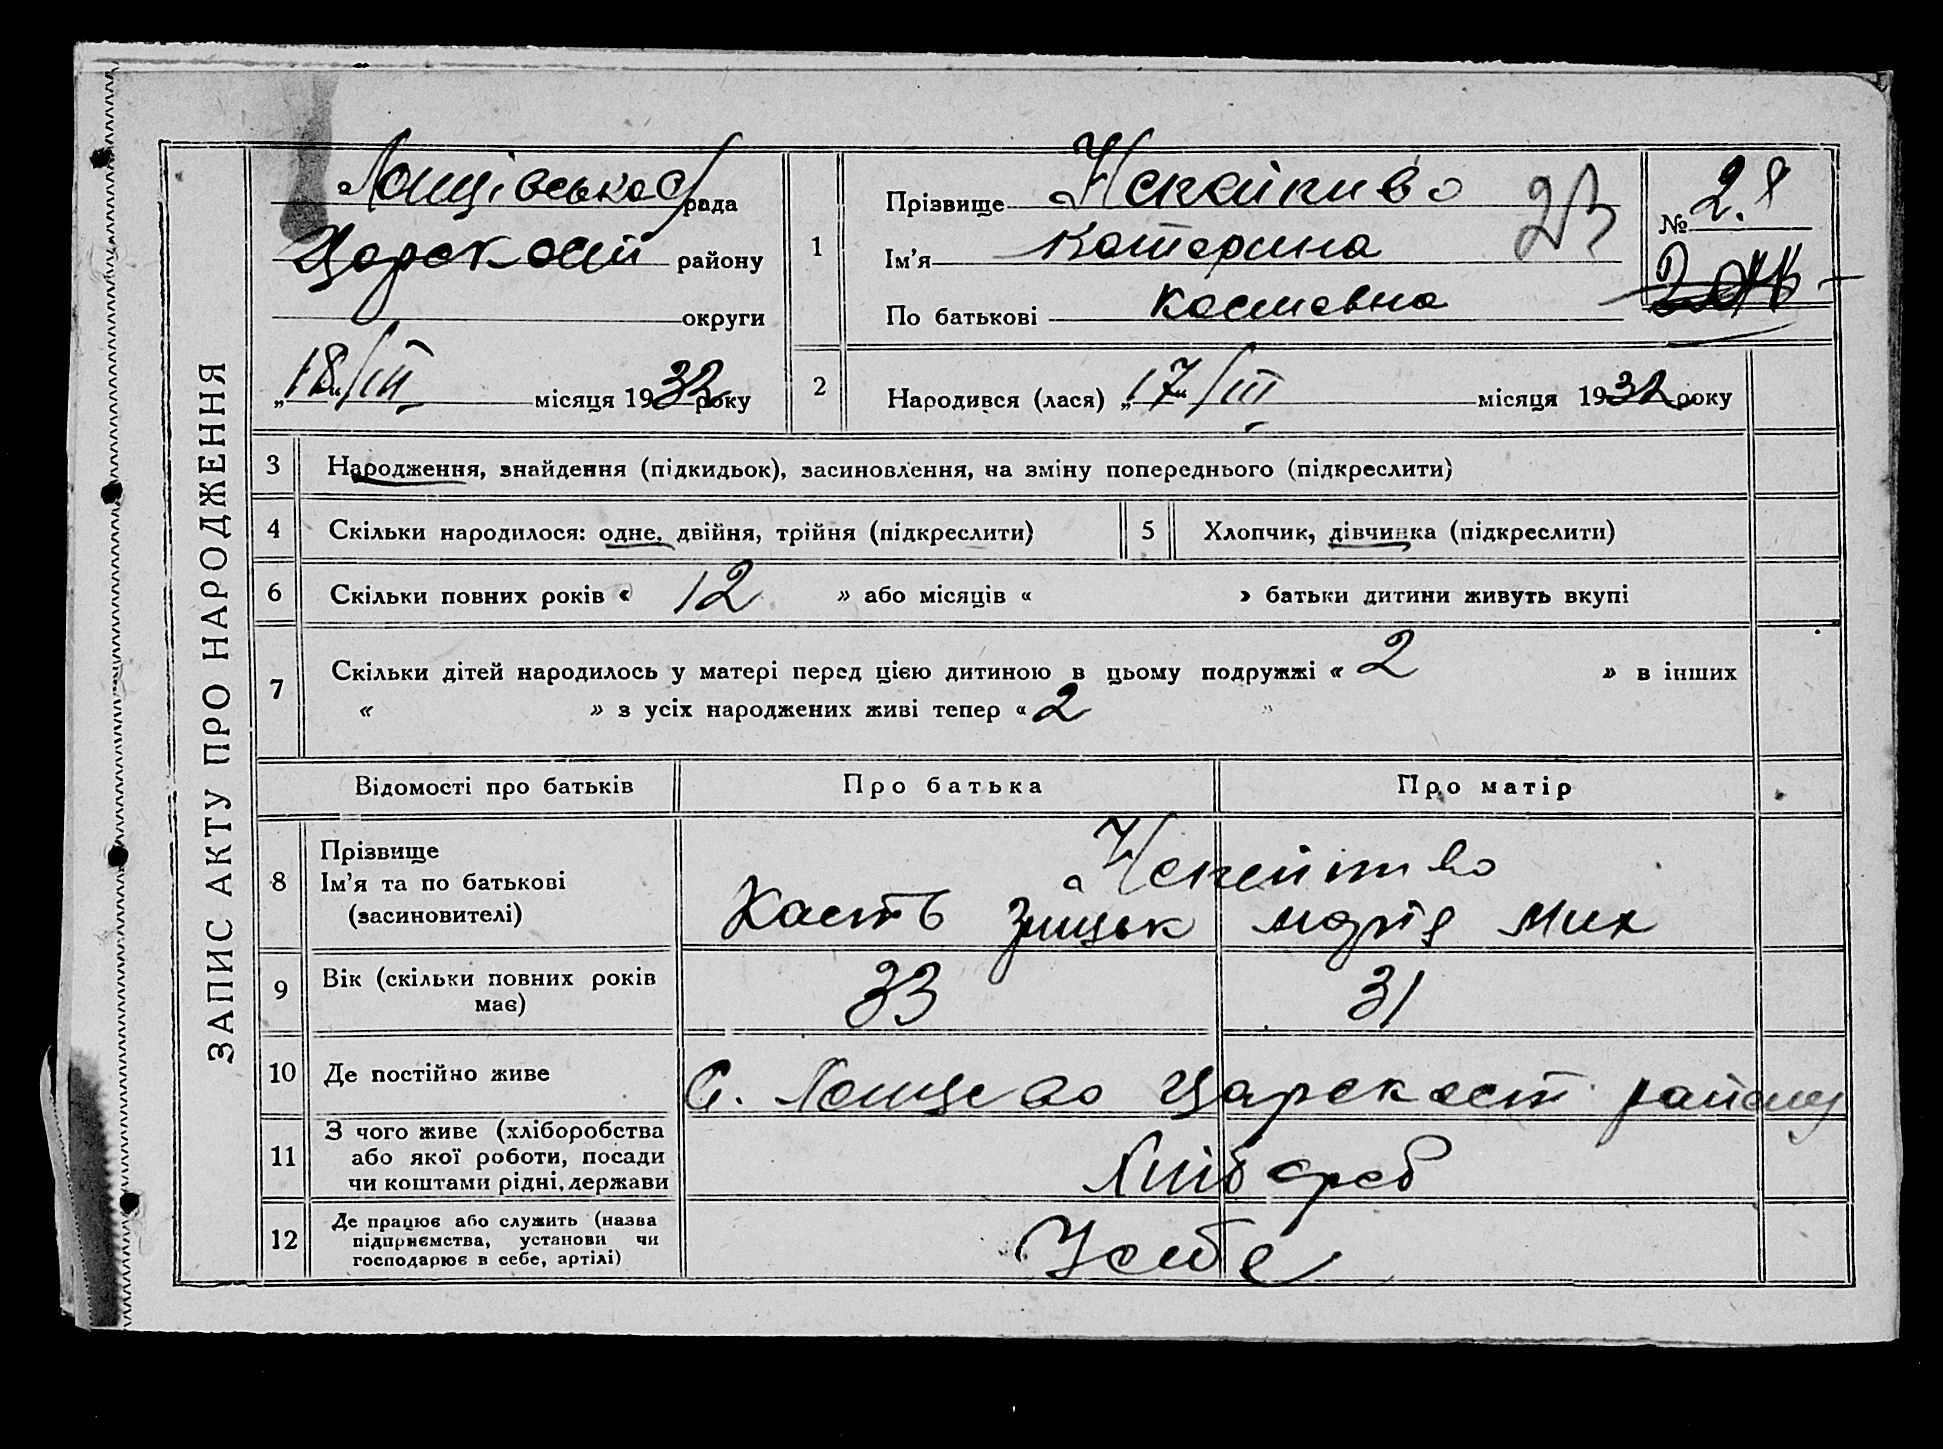 ЗАПИС АКТУ ПРО НАРОДЖЕННЯ
Лонцівська рада
Царскост району
округи
„18“/III місяця 1932 року
1
Прізвище Нскайпиво
Ім'я Катерина
По батькові Костовна
23
№ 28
2
Народився (лася) „17“/III місяця 1932 року
3 Народження, знайдення (підкидьок), засиновлення, на зміну попереднього (підкреслити)
4 Скільки народилося: одне, двійня, трійня (підкреслити)
5 Хлопчик, дівчинка (підкреслити)
6 Скільки повних років « 12 » або місяців « » батьки дитини живуть вкупі
7 Скільки дітей народилось у матері перед цією дитиною в цьому подружжі « 2 » в інших
« » з усіх народжених живі тепер « 2 »
Відомості про батьків Про батька Про матір
8 Прізвище
Ім'я та по батькові
(засиновителі)
Кость марія Мих
9 Вік (скільки повних років
має)
33 31
10 Де постійно живе С. Лонцево Царскост району
11 З чого живе (хліборобства
або якої роботи, посади
чи коштами рідні, держави
хлібороб
12 Де працює або служить (назва
підприємства, установи чи
господарює в себе, артілі)
У себе